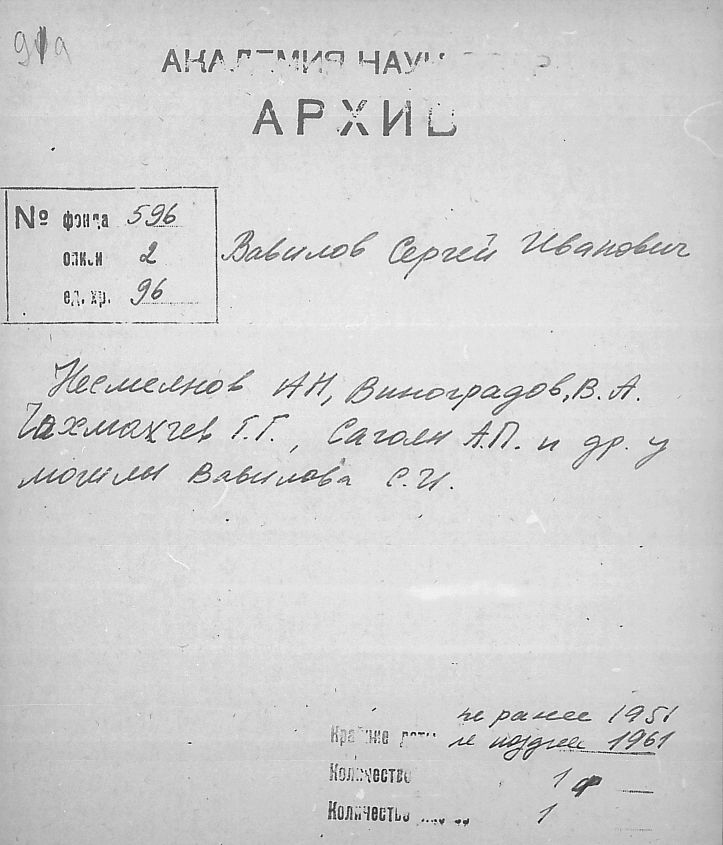 91а
АКАДЕМИЯ НАУК
АРХИВ
№ фонда 596
описи 2
ед. хр. 96
Вавилов Сергей Иванович
Несмеянов АН, Виноградов, В. А.
Чахмахчев Г.Г., Сагоян А.П. и др. у
могилы Вавилова С.И.
не ранее 1951
Крайние даты не позднее 1961
Количество 1
Количество 1